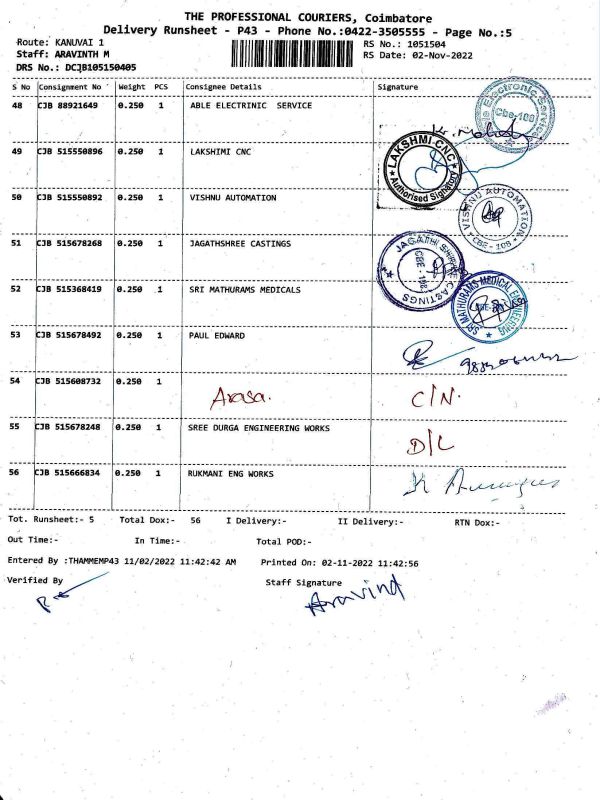 THE PROFESSIONAL COURIERS, Coimbatore
Delivery Runsheet - P43 - Phone No.:0422-3505555 - Page No.:5
Route: KANUVAI 1 RS No.: 1051504
Staff: ARAVINTH M RS Date: 02-Nov-2022
DRS No.: DCJB105150405
S No Consignment No Weight PCS Consignee Details Signature
48 CJB 88921649 0.250 1 ABLE ELECTRINIC SERVICE
49 CJB 515550896 0.250 1 LAKSHIMI CNC
LAKSHMI CNC
Authorised Signatory
50 CJB 515550892 0.250 1 VISHNU AUTOMATION
VISHNU AUTOMATION
CBE - 108
51 CJB 515678268 0.250 1 JAGATHSHREE CASTINGS
52 CJB 515368419 0.250 1 SRI MATHURAMS MEDICALS
SRI MATHURAMS MEDICAL ENGINEERING
53 CJB 515678492 0.250 1 PAUL EDWARD
54 CJB 515608732 0.250 1 Arasa. C/N.
55 CJB 515678248 0.250 1 SREE DURGA ENGINEERING WORKS D/L
56 CJB 515666834 0.250 1 RUKMANI ENG WORKS
Tot. Runsheet:- 5 Total Dox:- 56 I Delivery:- II Delivery:- RTN Dox:-
Out Time:- In Time:- Total POD:-
Entered By :THAMMEMP43 11/02/2022 11:42:42 AM Printed On: 02-11-2022 11:42:56
Verified By Staff Signature
Aravind